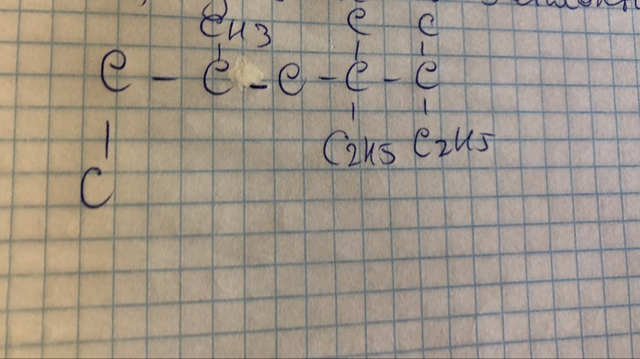 CH3 C C
C - C - C - C - C
C2H5 C2H5
C